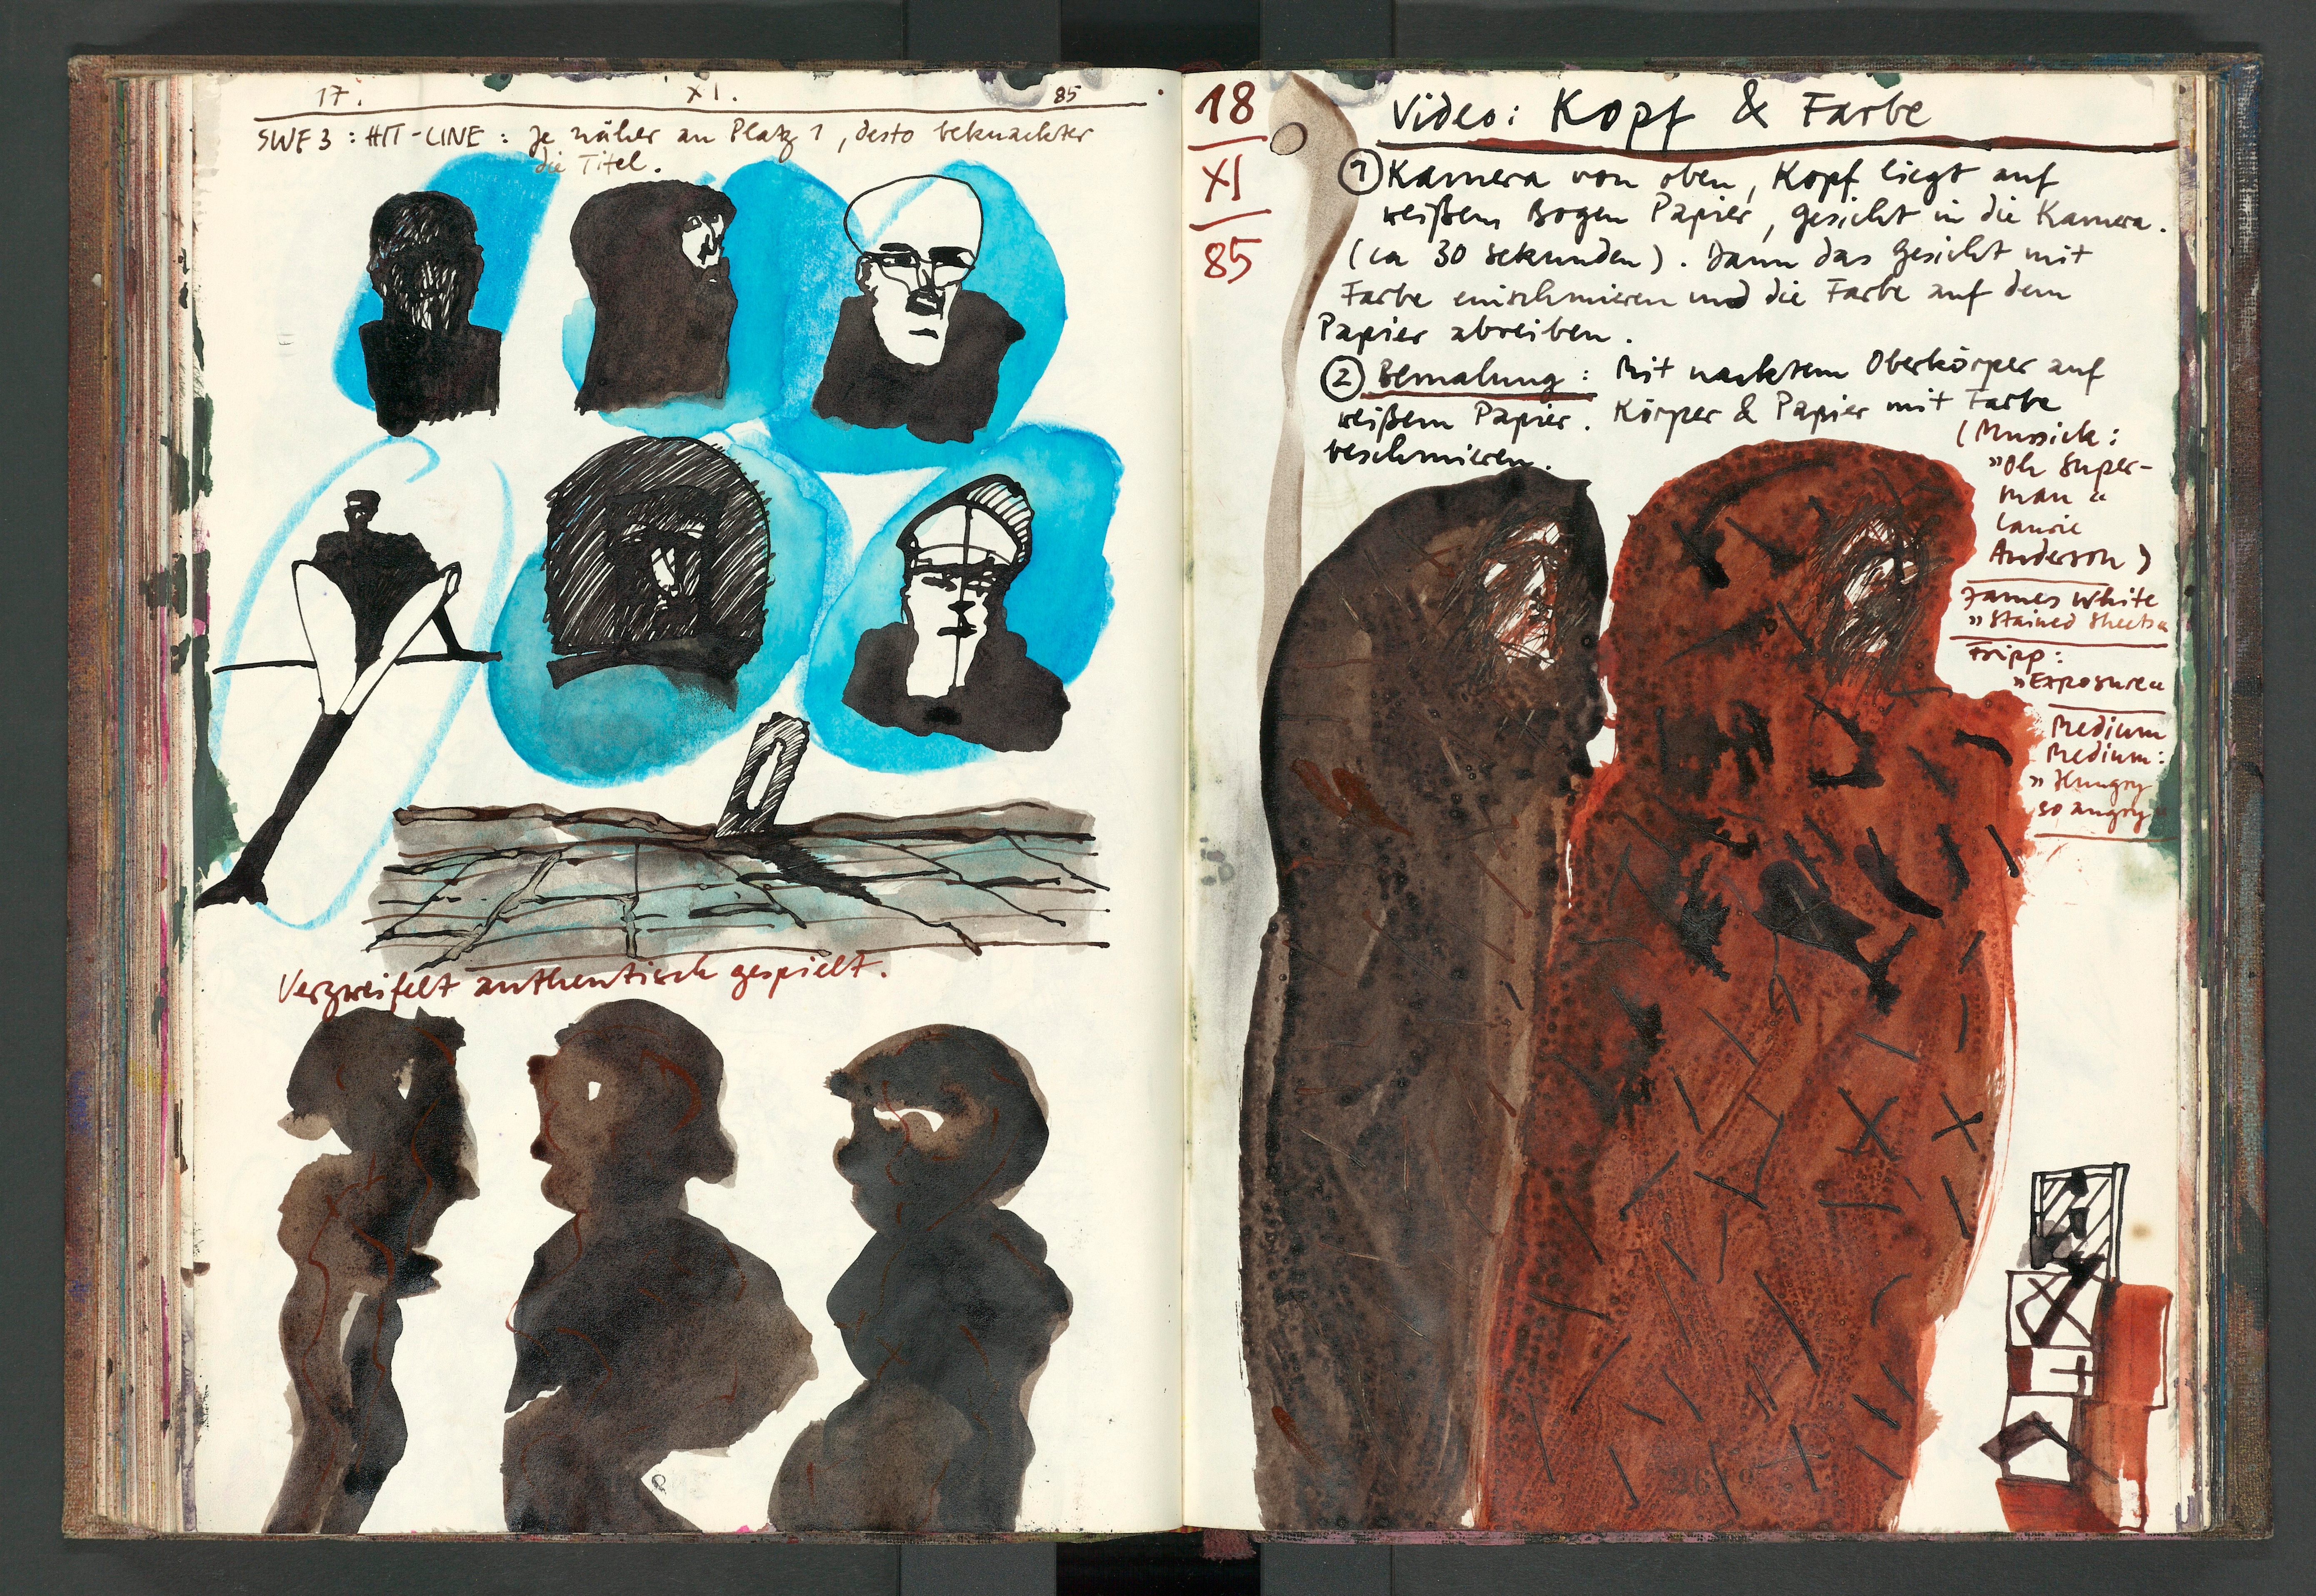 17. XI. 85
SWF 3 : HIT-LINE : Je näher an Platz 1, desto beknackter
die Titel.
Verzweifelt authentisch gespielt.
18
XI
85
Video: Kopf & Farbe
① Kamera von oben, Kopf liegt auf
weißem Bogen Papier, Gesicht in die Kamera.
(ca 30 Sekunden). Dann das Gesicht mit
Farbe einschmieren und die Farbe auf dem
Papier abreiben.
② Bemalung: Mit nacktem Oberkörper auf
weißem Papier. Körper & Papier mit Farbe
beschmieren.
(Mussick:
»Oh Super-
man«
Laurie
Anderson)
James White
»Stained Sheets«
Fripp:
»Exposure«
Medium
Medium:
»Hungry
so angry«